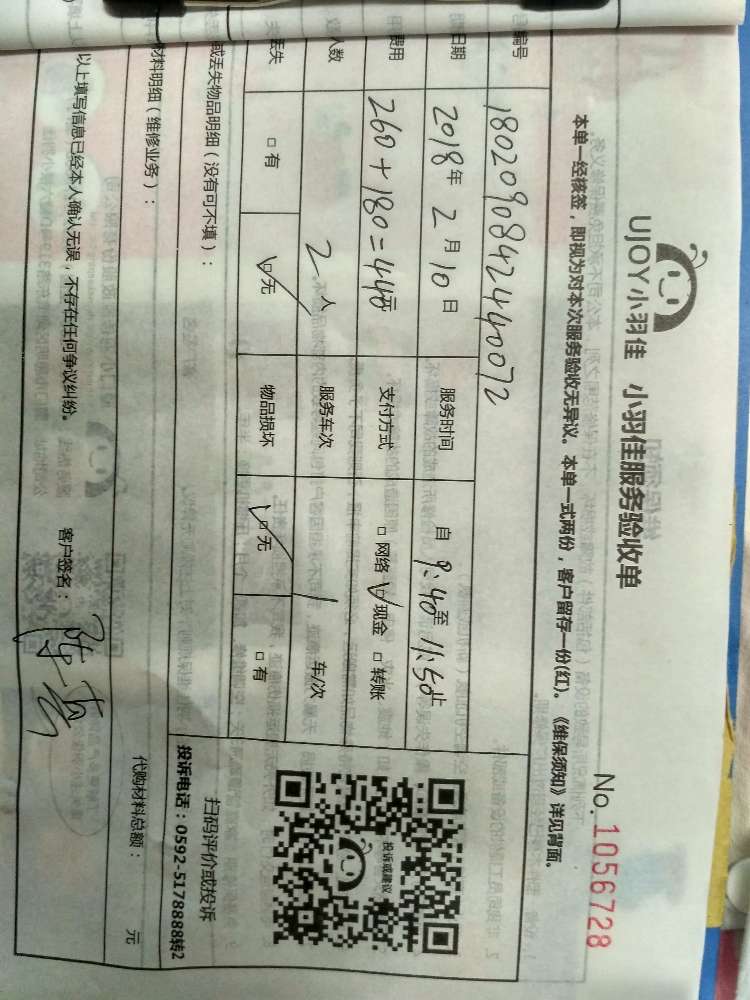 UJOY小羽佳 小羽佳服务验收单
No. 1056728
本单一经核签，即视为对本次服务验收无异议。本单一式两份，客户留存一份(红)。《维保须知》详见背面。
编号 1802090842440072
日期 2018年 2月 10日 服务时间 自 9:40至 11:50止
费用 260+180=440元 支付方式 □网络 ☑现金 □转账
人数 2人 服务车次 1 车/次
丢失 □有 ☑无 物品损坏 ☑无 □有
或丢失物品明细（没有可不填）：
投诉或建议
扫码评价或投诉
投诉电话：0592-5178888转2
材料明细（维修业务）：
代购材料总额： 元
以上填写信息已经本人确认无误，不存在任何争议纠纷。 客户签名：